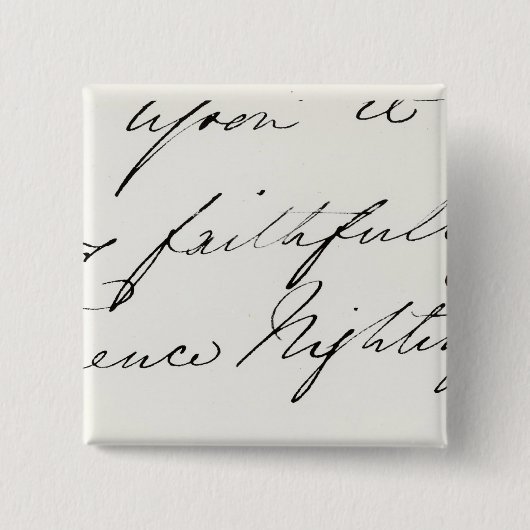 upon it
faithfull
ence Nightin